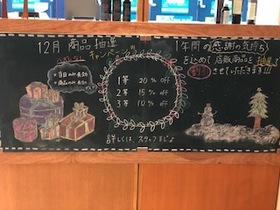 12月 商品 抽選
キャンペーン
1等 20% off
2等 15% off
3等 10% off
詳しくは スタッフまで♪
1年間の感謝の気持ち
をこめて 店販商品を 抽選で
割引 させていただきます!!